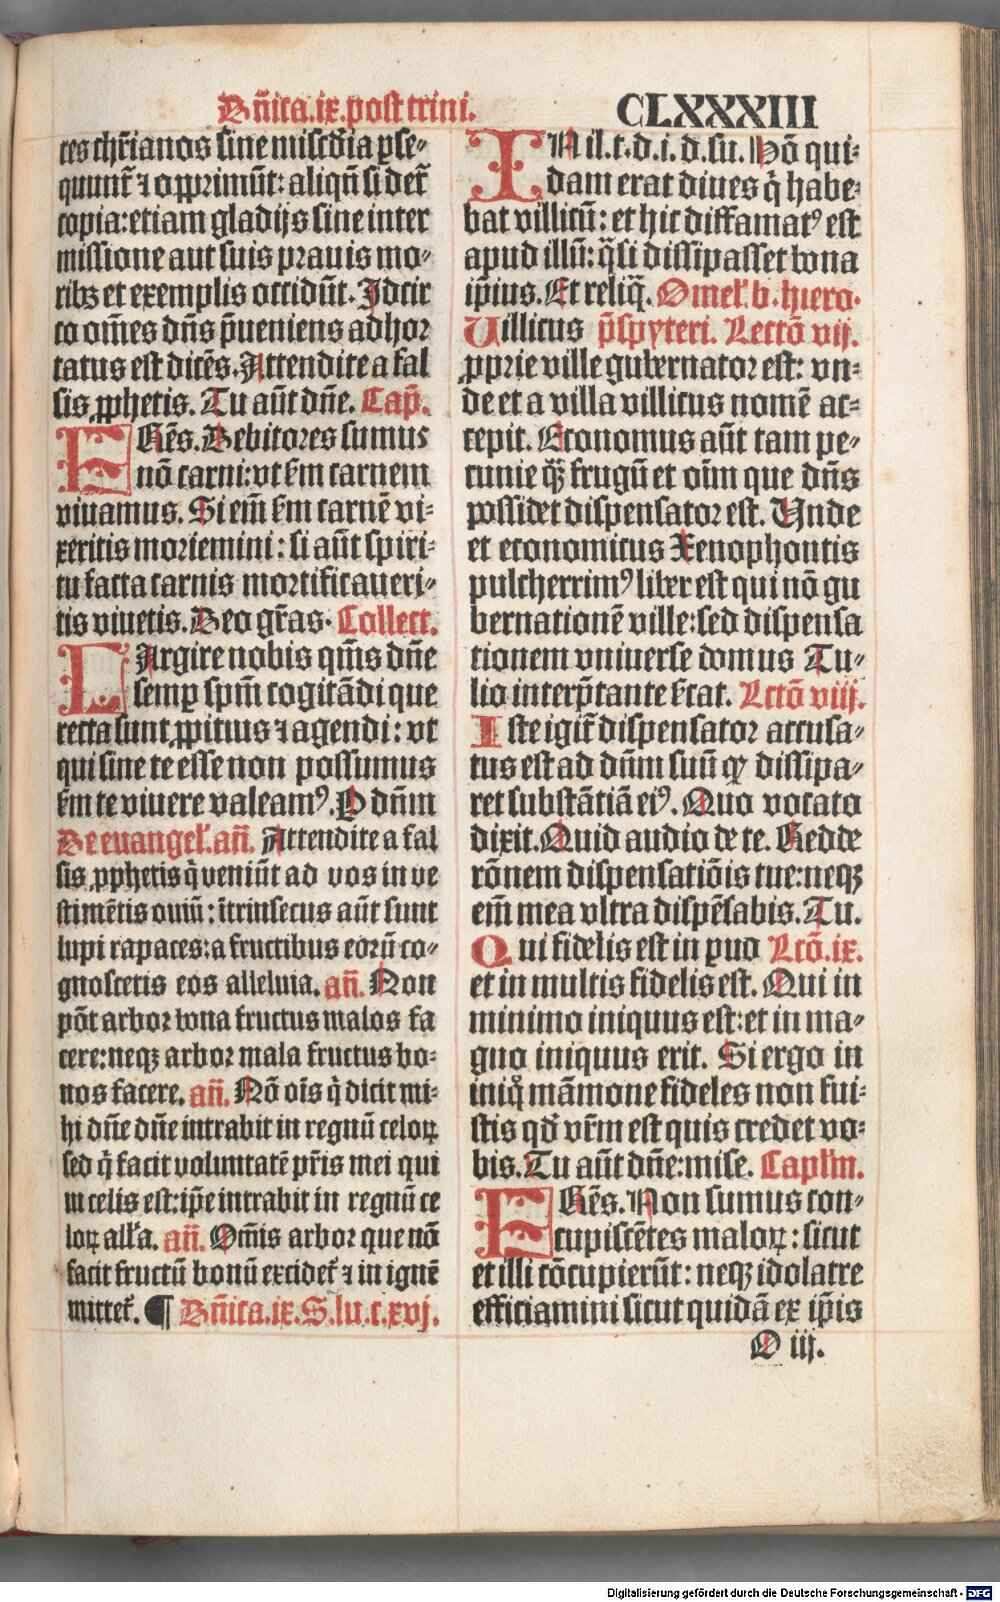 Dn̄ica.ix.post trini.
CLXXXIII
tes chr̄ianos sine misc̄dia ꝑse-
quunt̄ ⁊ opprimūt: aliqn̄ si det̄
copia: etiam gladijs sine inter
missione aut suis prauis mo-
ribꝫ et exemplis occidūt. Idcir
co om̄es dn̄s p̄ueniens adhor
tatus est dicēs. Attendite a fal
sis ꝓphetis. Tu aūt dn̄e. Cap̄.
FRēs. Debitores sumus
nō carni: vt s̄m carnem
viuamus. Si em̄ s̄m carnē vi-
xeritis moriemini: si aūt spiri-
tu facta carnis mortificaueri-
tis viuetis. Deo gr̄as. Collect.
LArgire nobis qm̄s dn̄e
semꝑ spm̄ cogitādi que
recta sunt ꝓpitius ⁊ agendi: vt
qui sine te esse non possumus
s̄m te viuere valeamꝰ. P dn̄m
De euangel̄. an̄. Attendite a fal
sis ꝓphetis q̄ veniūt ad vos in ve
stimētis ouiū: ītrinsecus aūt sunt
lupi rapaces: a fructibus eorū co-
gnoscetis eos alleluia. an̄. Non
pōt arbor bona fructus malos fa
cere: neqꝫ arbor mala fructus bo-
nos facere. an̄. Nō oīs q̄ dicit mi-
hi dn̄e dn̄e intrabit in regnū celoꝝ
sed q̄ facit voluntatē pr̄is mei qui
in celis est: ip̄e intrabit in regnū ce
loꝝ all̄a. an̄. Om̄is arbor que nō
facit fructū bonū excidet̄ ⁊ in ignē
mittet̄. ¶ Dn̄ica.ix.S.lu.c.xvj.
IN il.t.d.i.d.su. Hō qui-
dam erat diues q̄ habe-
bat villicū: et hic diffamatꝰ est
apud illū: q̄si dissipasset bona
ip̄ius. Et reliq̄. Omel̄. b. hiero.
Uillicus p̄spyteri. Lectō vij.
ꝓprie ville gubernator est: vn-
de et a villa villicus nomē ac-
cepit. Economus aūt tam pe-
cunie qꝫ̄ frugū et oīm que dn̄s
possidet dispensator est. Unde
et economicus Xenophontis
pulcherrimꝰ liber est qui nō gu
bernationē ville: sed dispensa
tionem vniuerse domus Tu-
lio interp̄tante s̄cat. Lctō viij.
Iste igit̄ dispensator accusa-
tus est ad dn̄m suū qꝛ dissipa-
ret substātiā eiꝰ. Quo vocato
dixit. Quid audio de te. Redde
rōnem dispensatiōis tue: neqꝫ
em̄ mea vltra dispēsabis. Tu.
Qui fidelis est in ꝑuo Lctō. ix.
et in multis fidelis est. Qui in
minimo iniquus est: et in ma-
gno iniquus erit. Si ergo in
iniqͦ māmone fideles non fui-
stis qd̄ vr̄m est quis credet vo-
bis. Tu aūt dn̄e: mise. Capl̄m.
FRēs. Non sumus con-
cupiscētes maloꝝ: sicut
et illi cōcupierūt: neqꝫ idolatre
efficiamini sicut quidā ex ip̄is
O iij.
Digitalisierung gefördert durch die Deutsche Forschungsgemeinschaft - DFG